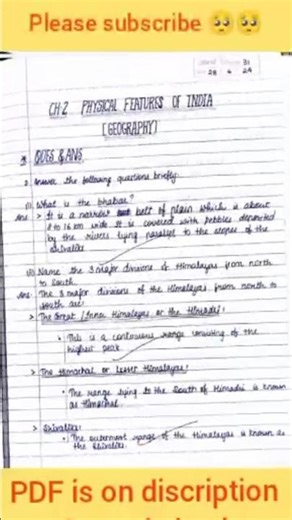 Please subscribe 🥺🥺
31
28 6 24
CH-2 PHYSICAL FEATURES OF INDIA
[GEOGRAPHY]
QUES & ANS
Answer the following questions briefly.
(i) What is the bhabar?
Ans > It is a narrow belt of plain which is about
8 to 16 km wide. It is covered with pebbles deposited
by the rivers lying parallel to the slopes of the
Shivaliks
(ii) Name the 3 major divisions of Himalayas from north
to South.
Ans: The 3 major divisions of the Himalayas from north to
south are:
> The Great / Inner Himalayas or the Himadri:
• This is a continuous range consisting of the
highest peak
> The Himachal or Lesser Himalayas:
• The range lying to the South of Himadri is known
as Himachal
> Shivaliks:
• The outermost range of the Himalayas is known as
the Shivaliks.
PDF is on discription